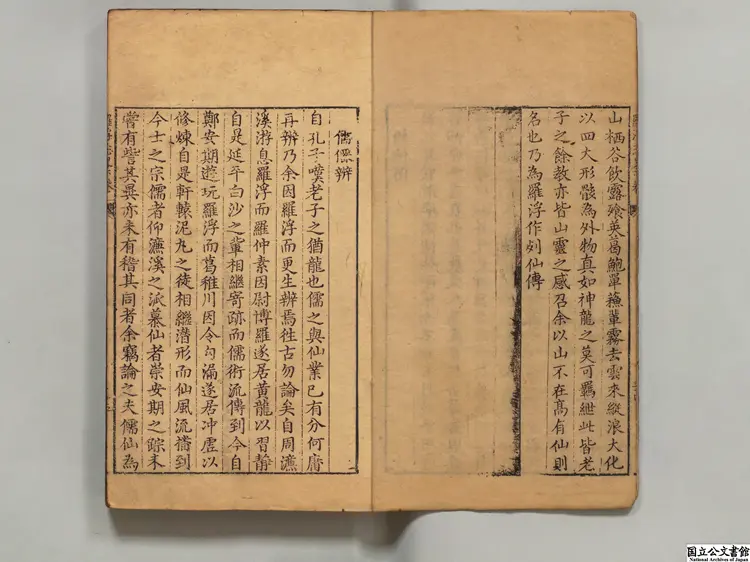 山栖谷飲露飱英葛鮑單蘓輩霧去雲來縱浪大化
以四大形骸為外物真如神龍之莫可羈紲此皆老
子之餘教亦皆山靈之感召余以山不在高有仙則
名也乃為羅浮作列仙傳
儒僊辨
自孔子嘆老子之猶龍也儒之與仙業已有分何庸
再辨乃余因羅浮而更生辨焉徃古勿論矣自周濂
溪游息羅浮而羅仲素因尉博羅遂居黃龍以習靜
自是延平白沙之輩相繼寄跡而儒術流傳到今自
鄭安期遊玩羅浮而葛稚川因令勾漏遂居冲虛以
修煉自是軒轅泥丸之徒相繼潛形而仙風流播到
今士之宗儒者仰濂溪之派慕仙者崇安期之踪未
嘗有訾其異亦未有稽其同者余竊論之夫儒仙為
国立公文書館
National Archives of Japan